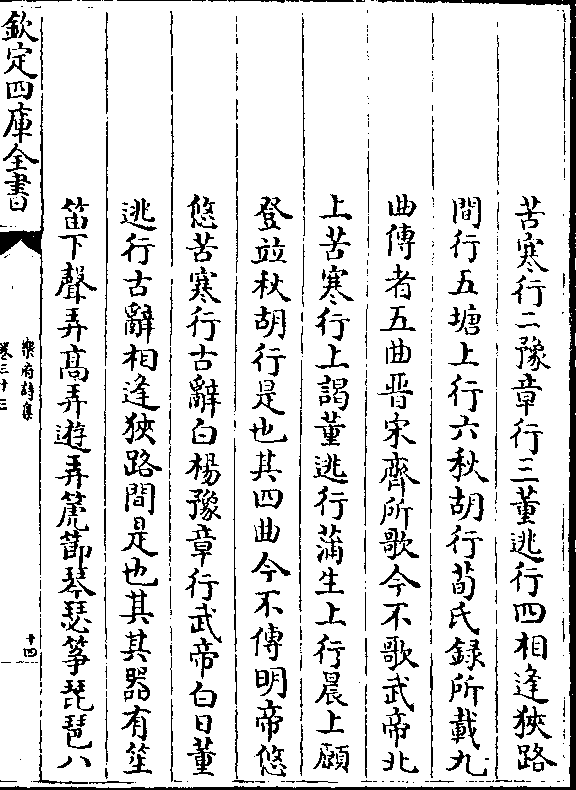 苦寒行二豫章行三董逃行四相逢狹路
間行五塘上行六秋胡行荀氏錄所載九
曲傳者五曲晋宋齊所歌今不歌武帝北
上苦寒行上謁董逃行蒲生上行晨上願
登竝秋胡行是也其四曲今不傳明帝悠
悠苦寒行古辭白楊豫章行武帝白日董
逃行古辭相逢狹路間是也其其器有笙
笛下聲弄髙弄遊弄箎節琴瑟筝琵琶八
欽定四庫全書
樂府詩集
卷三十三
十四